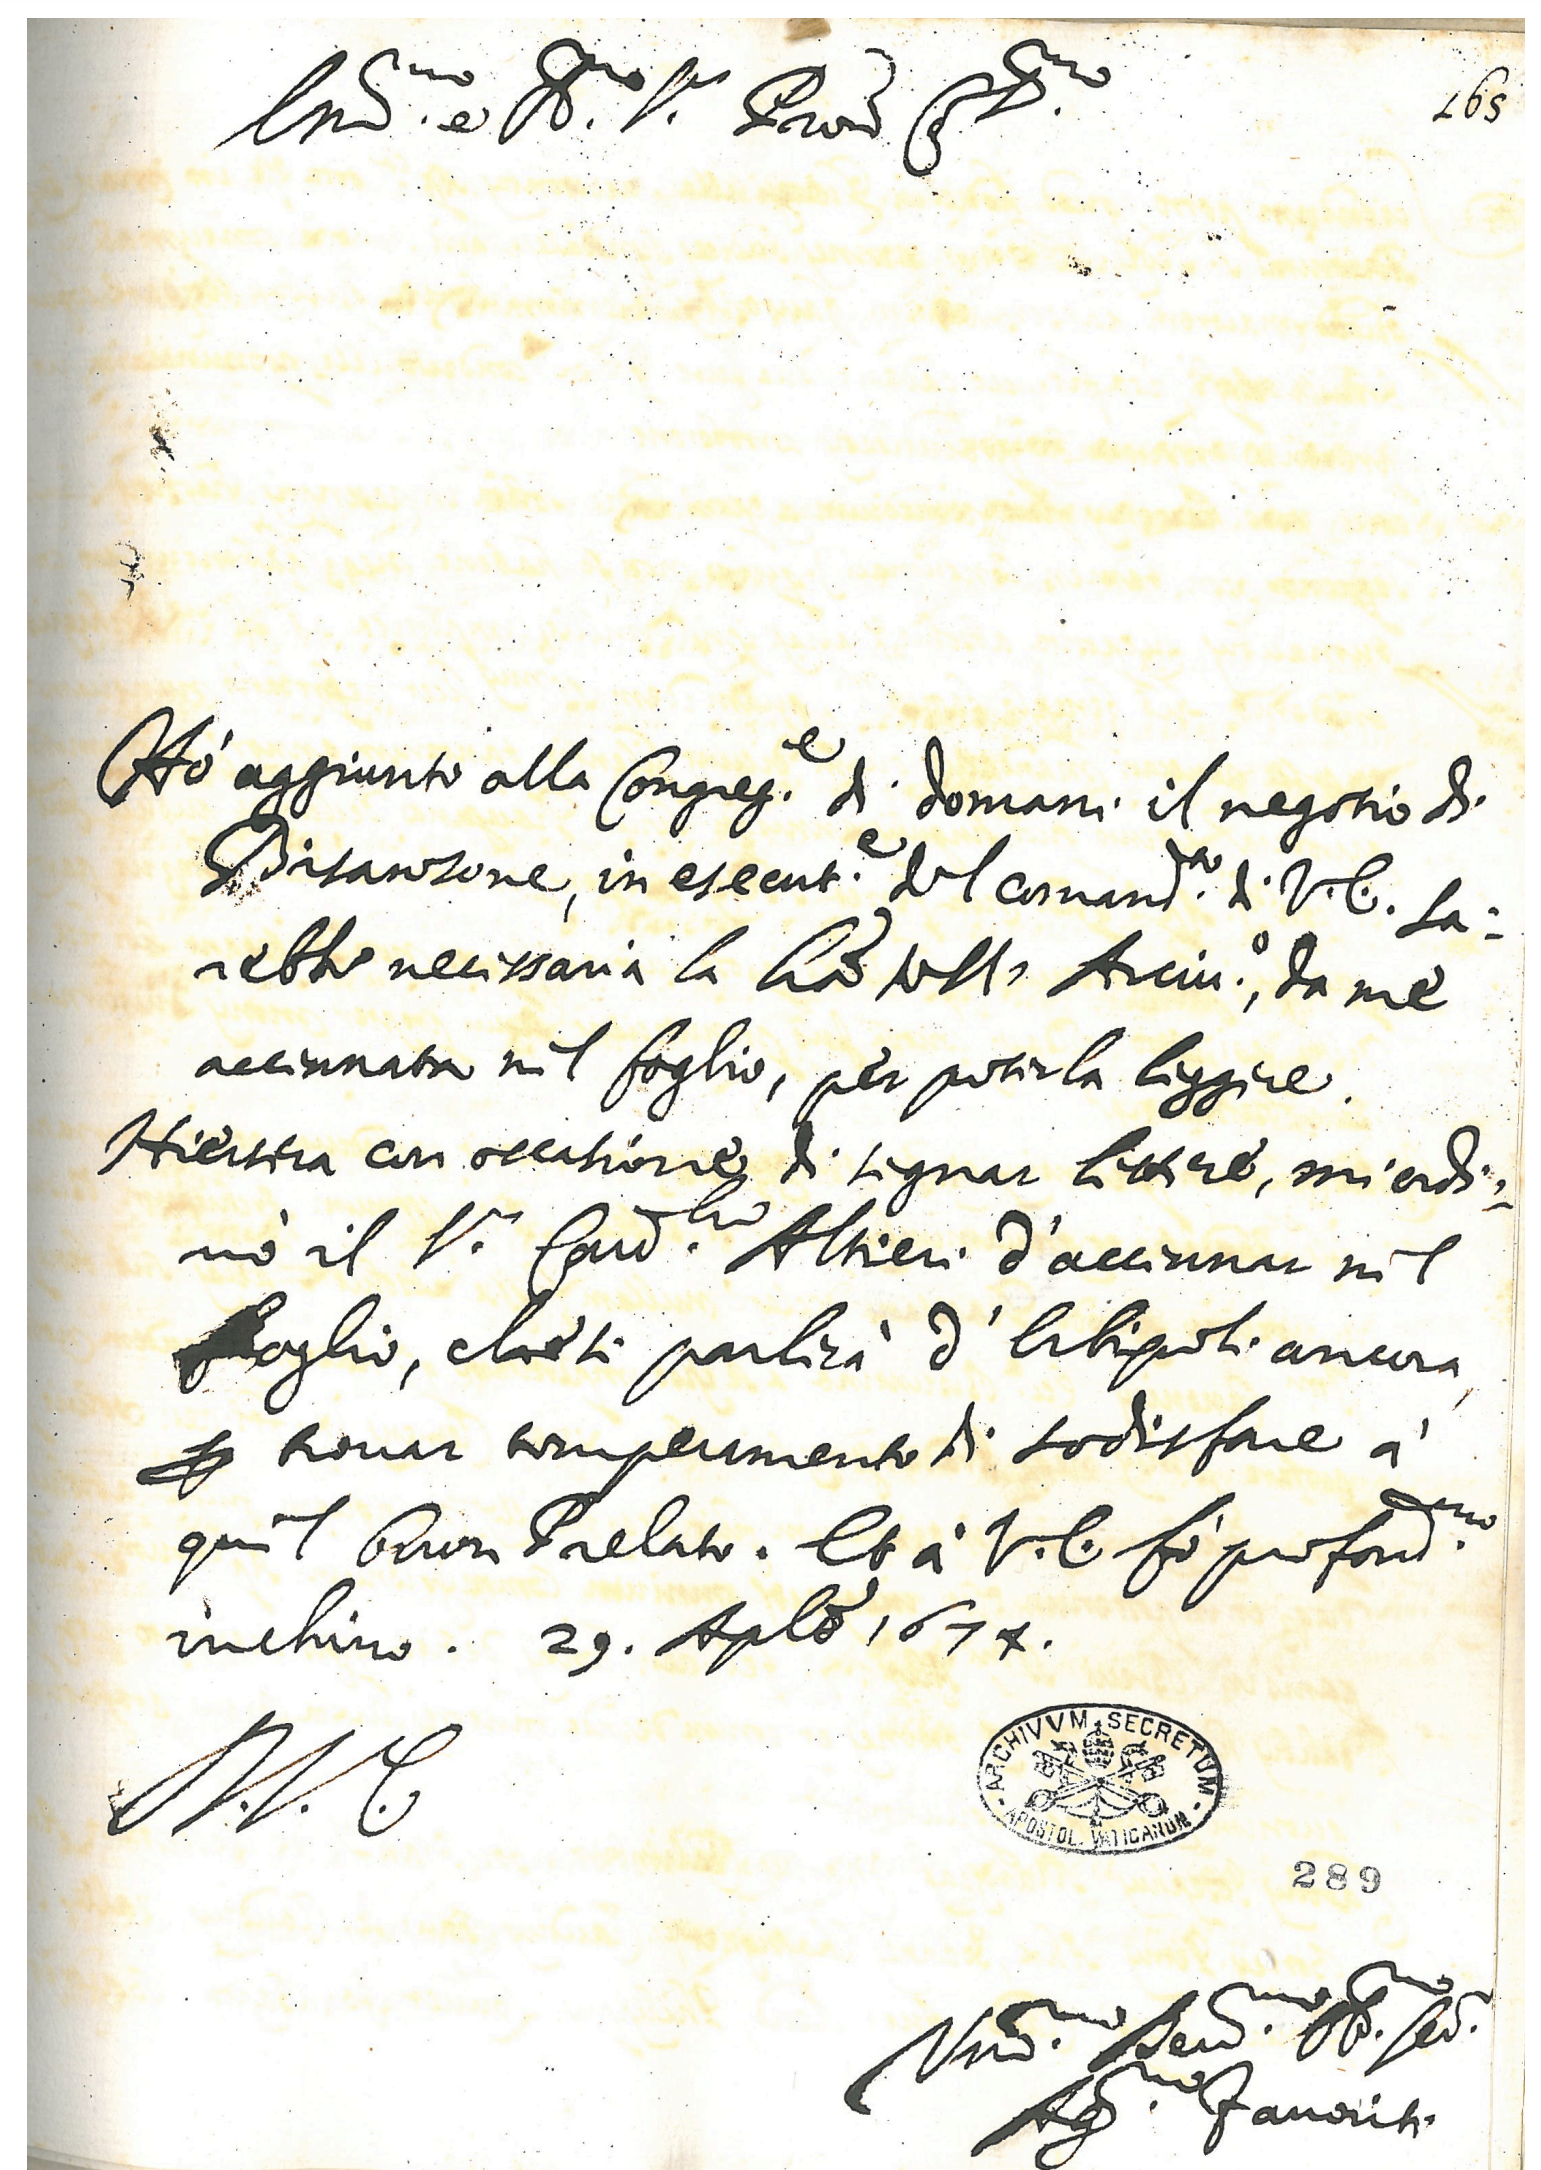 Em.mo e R.mo S.r Prōn Col.mo
597
Hò aggiunto alla Congreg.e di domani il negotio di
Bisansone, in esecut.e del comand.to di V.E. Sa=
rebbe necessaria la lrā dell' Arciu.o, da me
accennata nel foglio, per poterla leggere.
Hiersera con occasione di segnar lettere, mi ordi=
nò il S.r Card.le Altieri d'accennar nel
foglio, che si parlerà d'Erbipoli ancora,
p trouar temperamento di sodisfare à
quel buon Prelato. Et à V.E. fò profond.mo
inchino. 29. Aplē 1674.
V.E.
ARCHIVVM SECRETUM
APOSTOL. VATICANUM
289
Um.mo Deu.mo et Ob.mo ser.
Ag.no Fauoriti